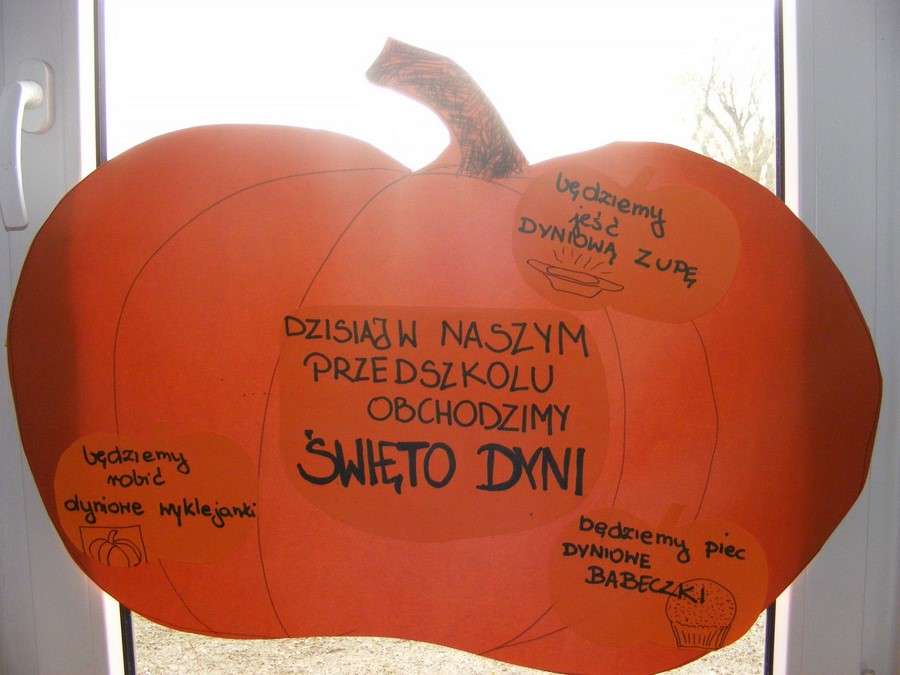 będziemy
jeść
DYNIOWĄ ZUPĘ
DZISIAJ W NASZYM
PRZEDSZKOLU
OBCHODZIMY
ŚWIĘTO DYNI
będziemy
robić
dyniowe wyklejanki
będziemy piec
DYNIOWE
BABECZKI